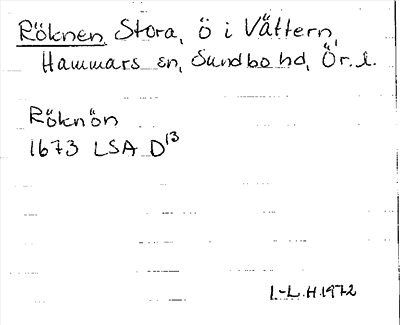 Röknen, Stora, ö i Vättern,
Hammars sn, Sundbo hd, Ör. l.
Röknön
1673 LSA D13
I.-L.H.1972